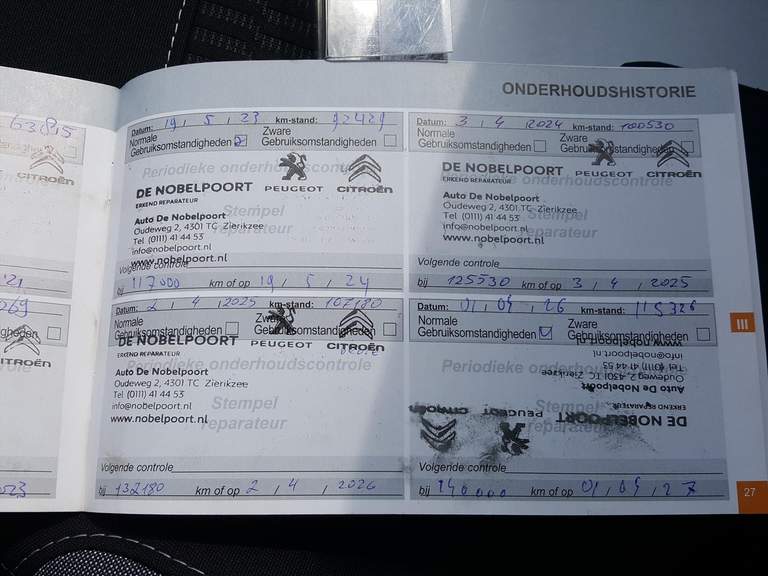 ONDERHOUDSHISTORIE
63815
CITROËN
'21
CITROËN
Datum: 19 / 5 / 23 km-stand: 92429
Normale Gebruiksomstandigheden
Zware Gebruiksomstandigheden
Periodieke onderhoudscontrole
DE NOBELPOORT
ERKEND REPARATEUR
PEUGEOT CITROËN
Stempel reparateur
Auto De Nobelpoort
Oudeweg 2, 4301 TC Zierikzee
Tel (0111) 41 44 53
info@nobelpoort.nl
www.nobelpoort.nl
Volgende controle
bij 117000 km of op 19 / 5 / 24
Datum: 3 / 4 / 2024 km-stand: 100530
Normale Gebruiksomstandigheden
Zware Gebruiksomstandigheden
DE NOBELPOORT
ERKEND REPARATEUR
PEUGEOT CITROËN
Stempel reparateur
Auto De Nobelpoort
Oudeweg 2, 4301 TC Zierikzee
Tel (0111) 41 44 53
info@nobelpoort.nl
www.nobelpoort.nl
Volgende controle
bij 125530 km of op 3 / 4 / 2025
2 / 4 / 2025 km-stand: 107180
Normale Gebruiksomstandigheden
Zware Gebruiksomstandigheden
DE NOBELPOORT
ERKEND REPARATEUR
PEUGEOT CITROËN
Periodieke onderhoudscontrole
Stempel reparateur
Auto De Nobelpoort
Oudeweg 2, 4301 TC Zierikzee
Tel (0111) 41 44 53
info@nobelpoort.nl
www.nobelpoort.nl
Volgende controle
bij 132180 km of op 2 / 4 / 2026
Datum: 01 / 04 / 26 km-stand: 115326
Normale Gebruiksomstandigheden
Zware Gebruiksomstandigheden
Periodieke onderhoudscontrole
Stempel reparateur
www.nobelpoort.nl
info@nobelpoort.nl
Tel (0111) 41 44 53
Oudeweg 2, 4301 TC Zierikzee
Auto De Nobelpoort
ERKEND REPARATEUR
DE NOBELPOORT
PEUGEOT CITROËN
Volgende controle
bij 140000 km of op 01 / 04 / 27
III
27